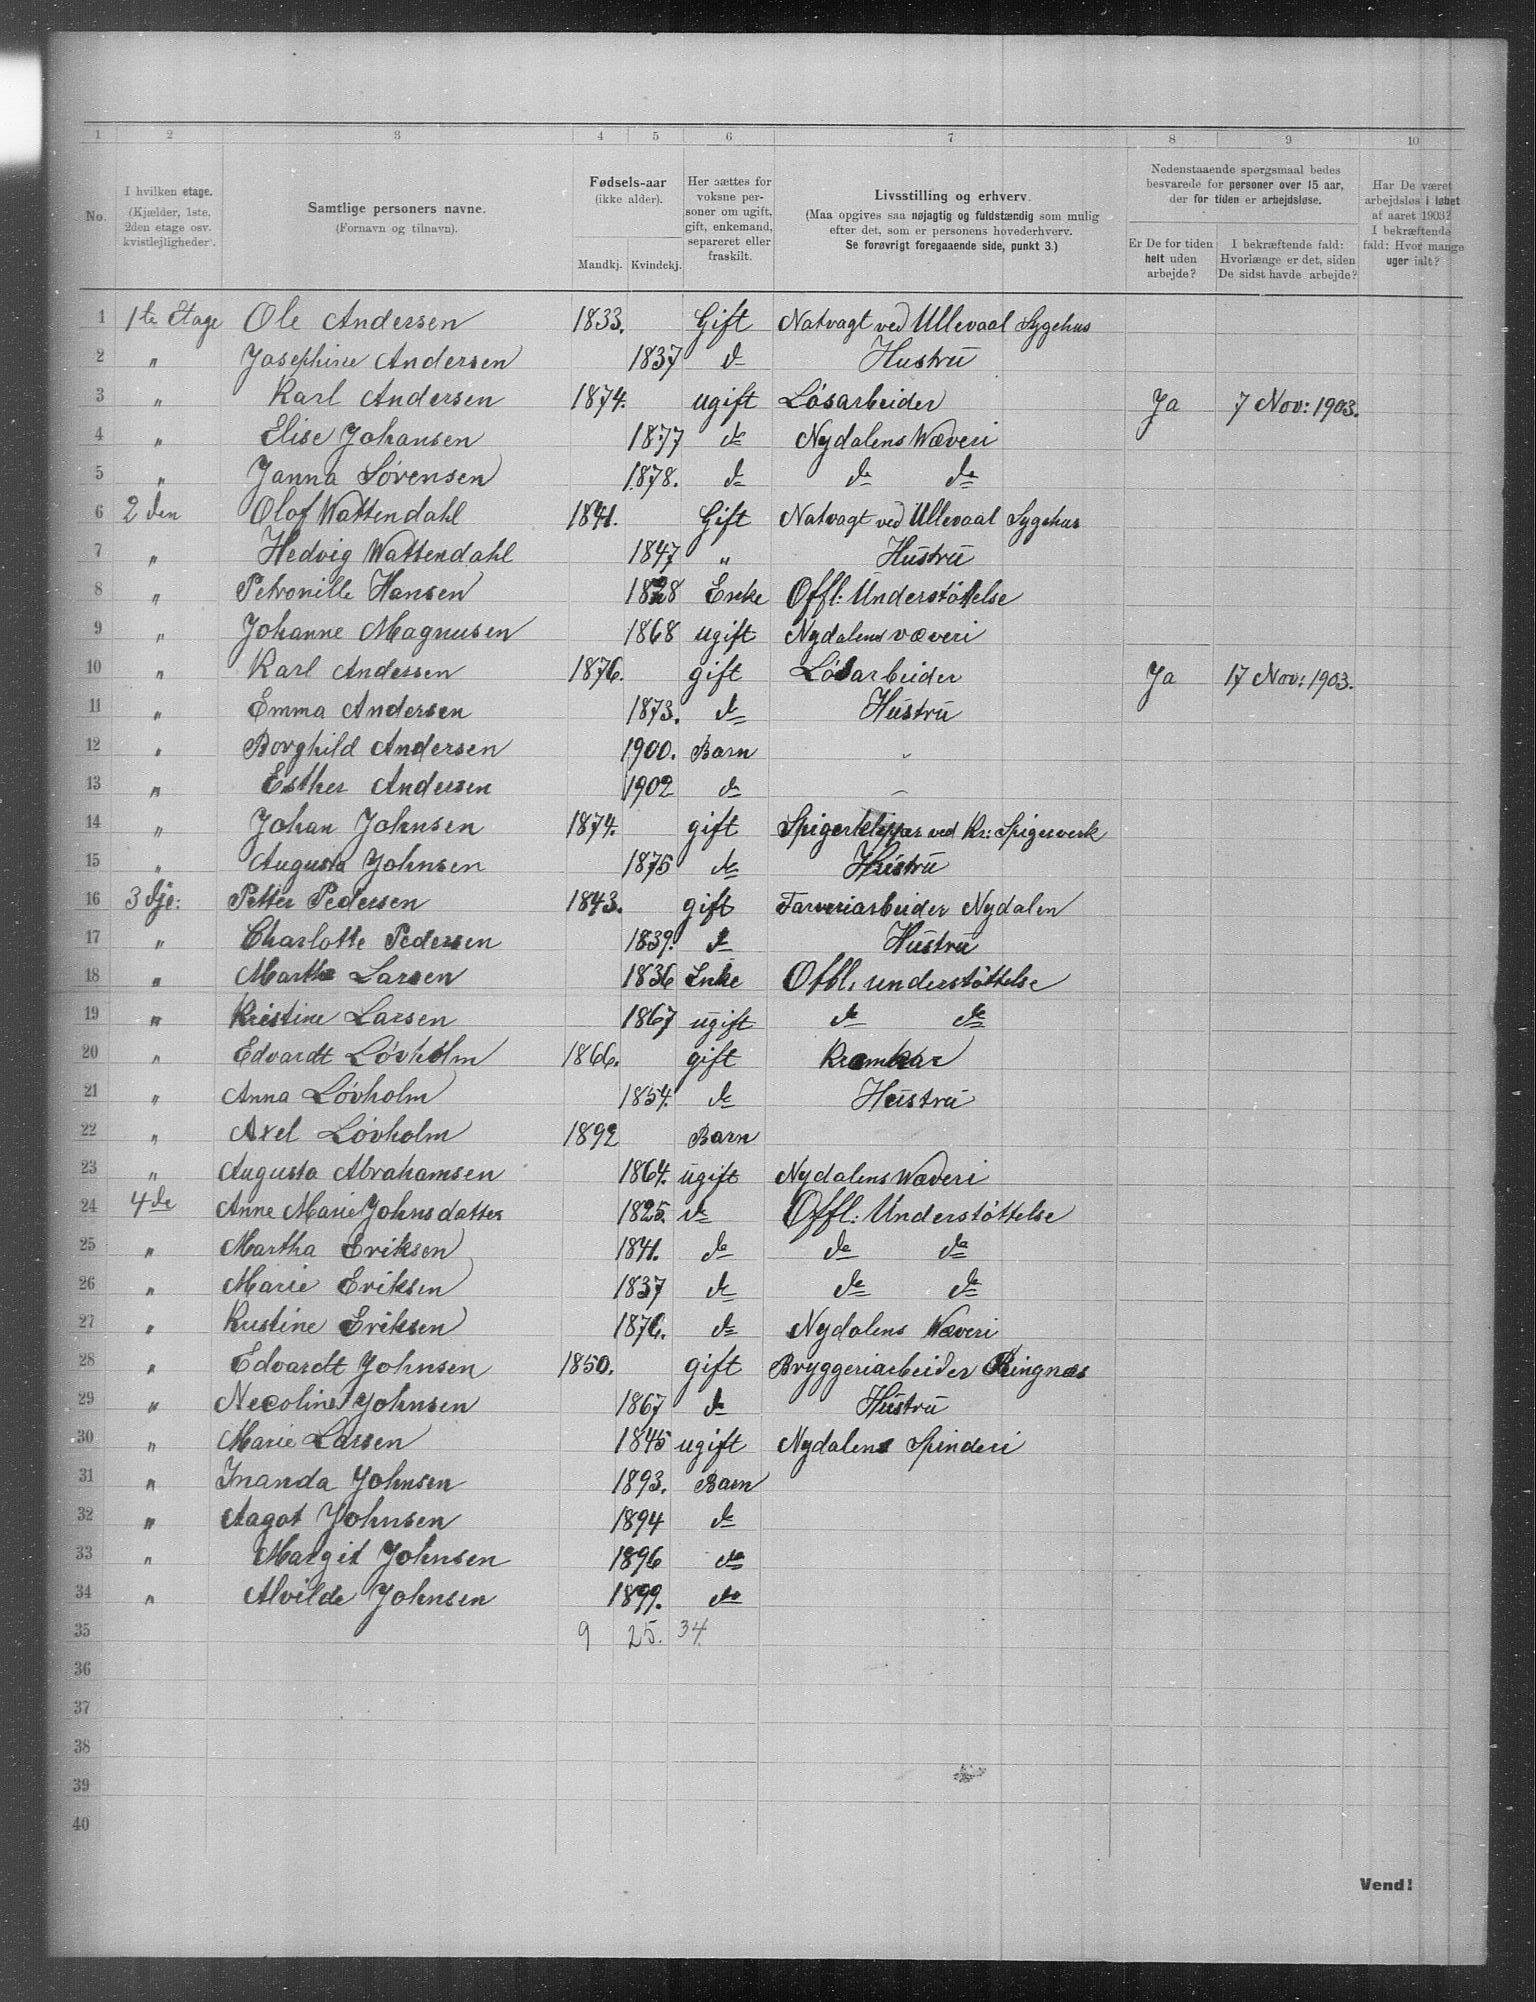 1 2 3 4 5 6 7 8 9 10
No.
I hvilken etage. (Kjælder, 1ste, 2den etage osv. kvistlejligheder).
Samtlige personers navne. (Fornavn og tilnavn).
Fødsels-aar (ikke alder).
Mandkj. Kvindekj.
Her sættes for voksne personer om ugift, gift, enkemand, separeret eller fraskilt.
Livsstilling og erhverv.
(Maa opgives saa nøjagtig og fuldstændig som mulig efter det, som er personens hovederhverv.
Se forøvrigt foregaaende side, punkt 3.)
Nedenstaaende spørgsmaal bedes besvarede for personer over 15 aar, der for tiden er arbejdsløse.
Er De for tiden helt uden arbejde?
I bekræftende fald: Hvorlænge er det, siden De sidst havde arbejde?
Har De været arbejdsløs i løbet af aaret 1903? I bekræftende fald: Hvor mange uger ialt?
1 1te Etage Ole Andersen 1833. Gift Natvagt ved Ullevaal Sygehus
2 " Josephine Andersen 1837 do Hustru
3 " Karl Andersen 1874. ugift Løsarbeider Ja 7 Nov: 1903.
4 " Elise Johansen 1877 do Nydalens Wæveri
5 " Janna Sørensen 1878. do do do
6 2den Olof Wattendahl 1841. Gift Natvagt ved Ullevaal Sygehus
7 " Hedvig Wattendahl 1847 " Hustru
8 " Petronille Hansen 1828 Enke Offl: Understøttelse
9 " Johanne Magnusen 1868 ugift Nydalens væveri
10 " Karl Andersen 1876. gift Løsarbeider Ja 17 Nov: 1903.
11 " Emma Andersen 1873. do Hustru
12 " Borghild Andersen 1900. Barn "
13 " Esther Andersen 1902 do
14 " Johan Johnsen 1874. gift Spigerklipper ved Kr: Spigerverk
15 " Augusta Johnsen 1875 do Hustru
16 3dje: Petter Pedersen 1843. gift Farveriarbeider Nydalen
17 " Charlotte Pedersen 1839. do Hustru
18 " Marthe Larsen 1836 Enke Offl, understøttelse
19 " Kristine Larsen 1867 ugift do do
20 " Edvardt Løvholm 1866. gift Kramkar
21 " Anna Løvholm 1854. do Hustru
22 " Axel Løvholm 1892 Barn
23 " Augusta Abrahamsen 1864. ugift Nydalens Wæveri
24 4de Anne Marie Johnsdatter 1825. do Offl: Understøttelse
25 " Martha Eriksen 1841. do do do
26 " Marie Eriksen 1837 do do do
27 " Kristine Eriksen 1876. do Nydalens Wæveri
28 " Edvardt Johnsen 1850. gift Bryggeriarbeider Ringnæs
29 " Necoline Johnsen 1867 do Hustru
30 " Marie Larsen 1845 ugift Nydalens Spinderi
31 " Inanda Johnsen 1893. Barn
32 " Aagot Johnsen 1894 do
33 " Margit Johnsen 1896 do
34 " Alvilde Johnsen 1899. do
35 9 25. 34.
36
37
38
39
40
Vend!